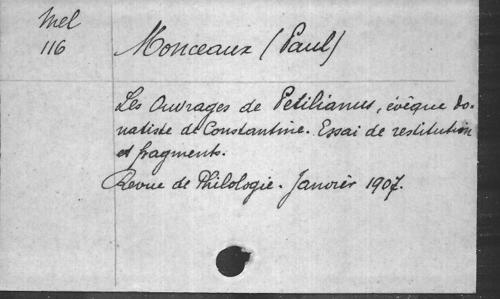 Mel
116
Monceaux (Paul)
Les Ouvrages de Petilianus, évêque do-
natiste de Constantine. Essai de restitution
et fragments.
Revue de Philologie. Janvier 1907.